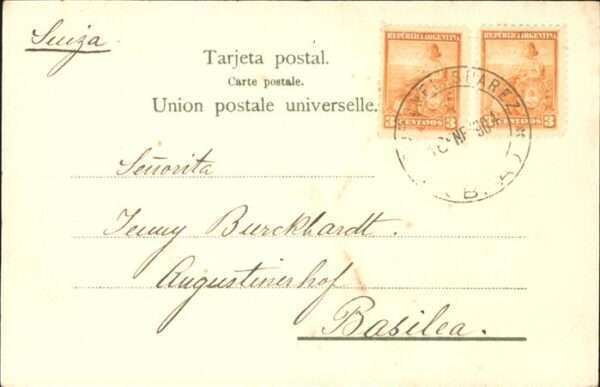 Suiza
Tarjeta postal.
Carte postale.
Union postale universelle.
REPÚBLICA ARGENTINA
3 CENTAVOS 3
REPÚBLICA ARGENTINA
3 CENTAVOS 3
SUAREZ
B. A.
Señorita
Jenny Burckhardt.
Augustinerhof
Basilea.